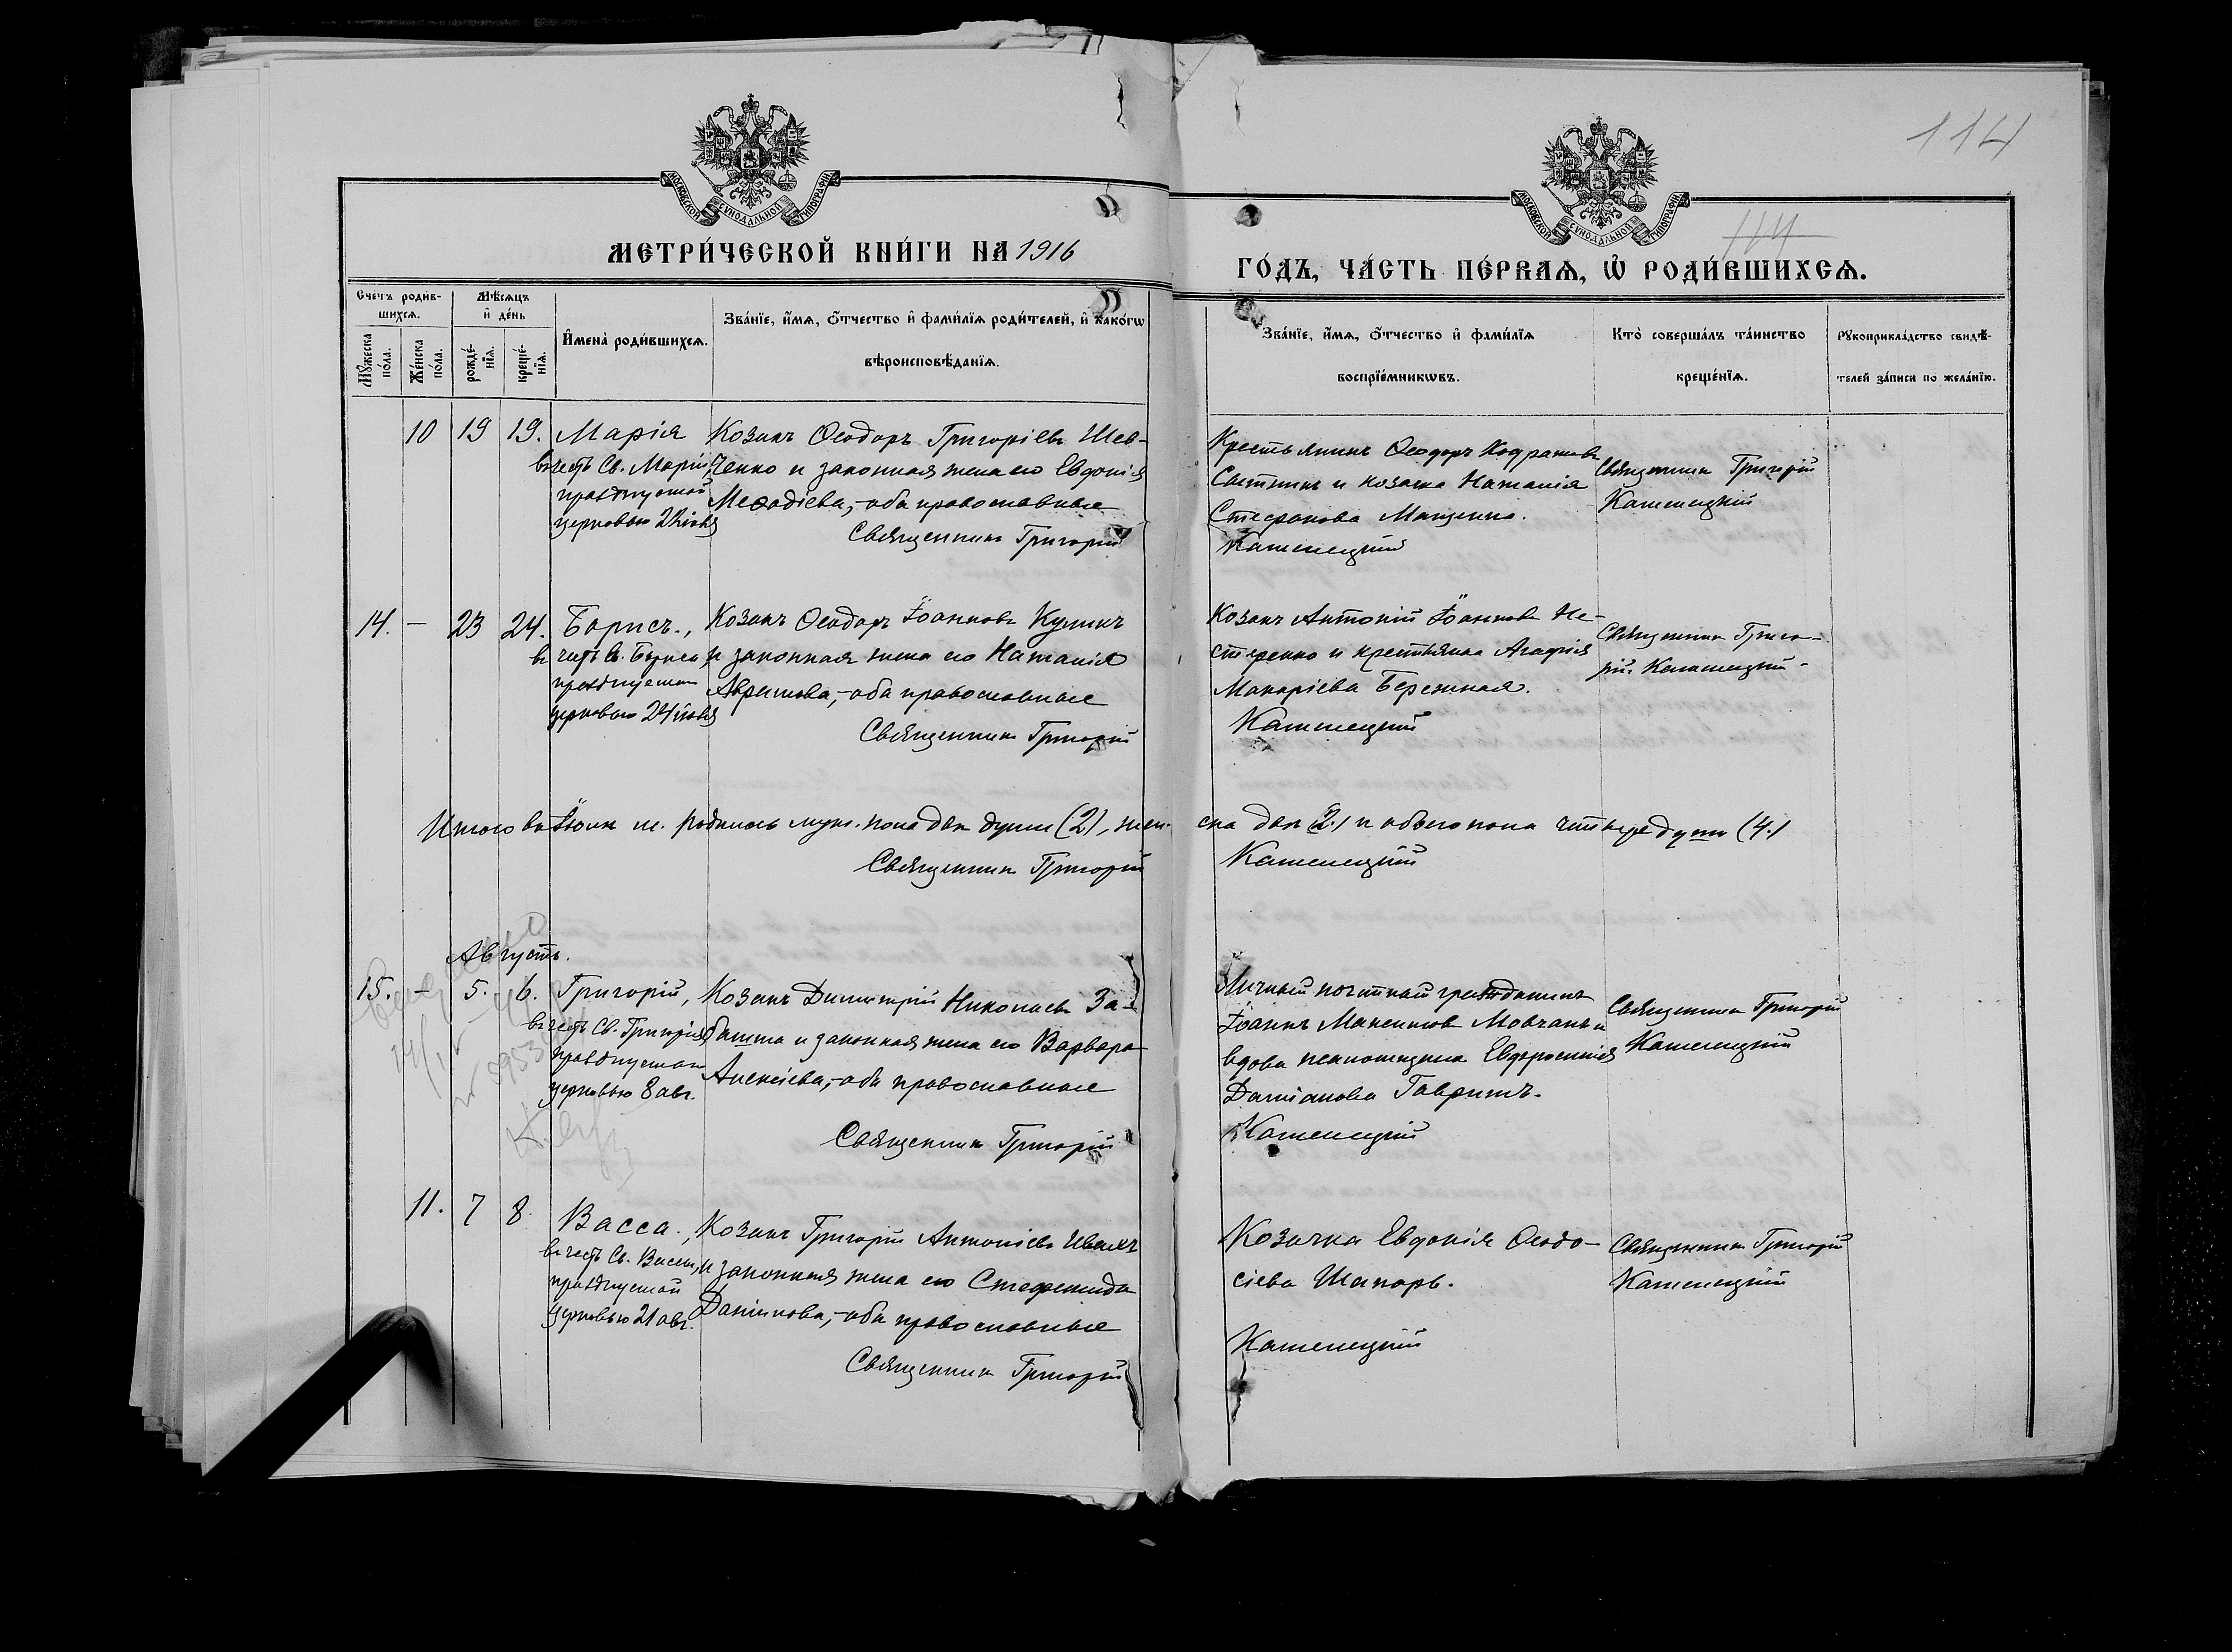 114
МОСКОВСКОЙ СѴНОДАЛЬНОЙ ТИПОГРАФІИ
МОСКОВСКОЙ СѴНОДАЛЬНОЙ ТИПОГРАФІИ
114
МЕТРИ́ЧЕСКОЙ КНИ́ГИ НА 1916
ГО́ДЪ, ЧА́СТЬ ПЕ́РВАѦ, Ѡ҆ РОДИ́ВШИХСѦ.
Счетъ роди́в-
шихсѧ.
Мѣ́сѧцъ
и҆ де́нь
Мꙋ́жеска
по́ла.
Же́нска
по́ла.
рожде́-
нїѧ.
креще́-
нїѧ.
И҆мена̀ роди́вшихсѧ.
Зва́нїе, и҆́мѧ, ѻ҆́тчество и҆ фами́лїѧ роди́телей, и҆ како́гѡ
вѣроисповѣ́данїѧ.
Зва́нїе, и҆́мѧ, ѻ҆́тчество и҆ фами́лїѧ
воспрїе́мникѡвъ.
Кто̀ соверша́лъ та́инство
креще́нїѧ.
Рꙋкоприкла́дство свидѣ́-
телей за́писи по жела́нїю.
10 19 19. Марія
въ честь Св. Маріи,
празднуемой
церковью 22 іюля
Козакъ Ѳеодоръ Григоріевъ Шев-
ченко и законная жена его Евдокія
Меѳодіева, - оба православные
Священникъ Григорій
Крестьянинъ Ѳеодоръ Кодратовъ
и козачка Наталія
Стефанова
Каменецкій
Священникъ Григорій
Каменецкій
14. - 23 24. Борисъ.,
въ честь Св. Бориса,
празднуемаго
церковью 24 іюля
Козакъ Ѳеодоръ Іоанновъ Куликъ
и законная жена его Наталія
- оба православные
Священникъ Григорій
Козакъ Антоній Іоанновъ Не-
стеренко и крестьянка Агафія
Макаріева Бережная.
Каменецкій
Священникъ Григо-
рій Каменецкій
Итого въ Іюлѣ м. родилось муж. пола двѣ души (2), жен-
ска двѣ (2) и обоего пола четыре души (4)
Священникъ Григорій
Каменецкій
Августъ.
15. - 5. 6. Григорій,
въ честь Св. Григорія
празднуемаго
церковью 8 авг.
Козакъ Димитрій Николаевъ За-
башта и законная жена его Варвара
Алексіева, - оба православные
Священникъ Григорій
Личный почетный гражданинъ
Іоаннъ Максимовъ Мовчанъ и
вдова псаломщика Евфросинія
Даміанова Гавришъ.
Каменецкій
Священникъ Григорій
Каменецкій
11. 7 8 Васса.,
въ честь Св. Вассы,
празднуемой
церковью 21 авг.
Козакъ Григорій Антоніевъ
и законная жена его Стефанида
- оба православные
Священникъ Григорій
Козачка Евдокія Ѳеодо-
сіева Шапарь.
Каменецкій
Священникъ Григорій
Каменецкій